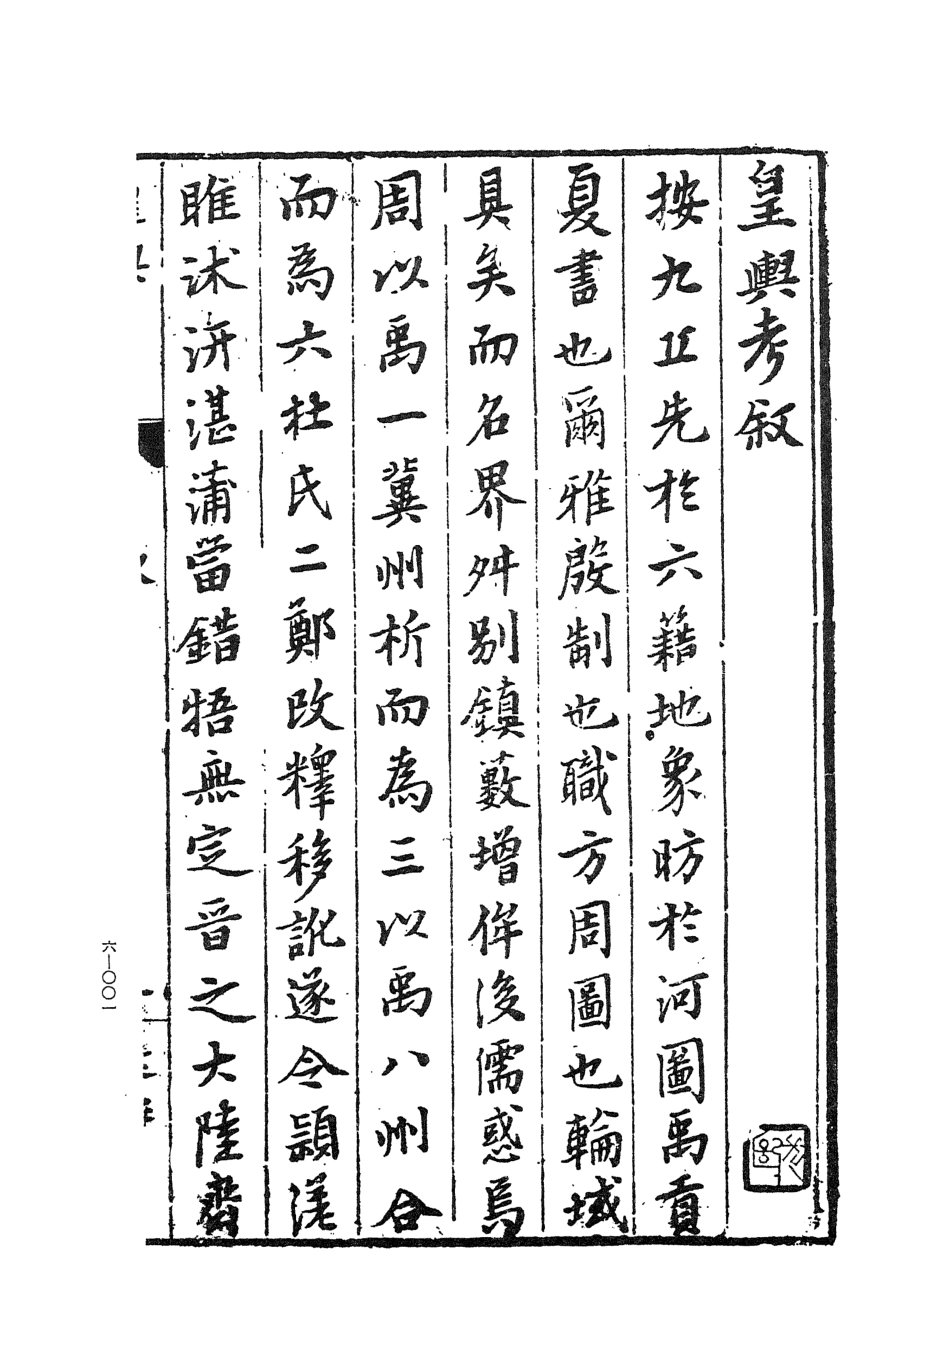 皇輿考叙
按九丘先於六籍地象昉於河圖禹貢
夏書也爾雅殷制也職方周圖也輪域
具矣而名界舛别鎮藪增侔後儒惑焉
周以禹一冀州析而為三以禹八州合
而為六杜氏二鄭改釋移訛遂令潁漢
睢沭汧湛蒲當錯牾無定晉之大陸齋
六—〇〇一